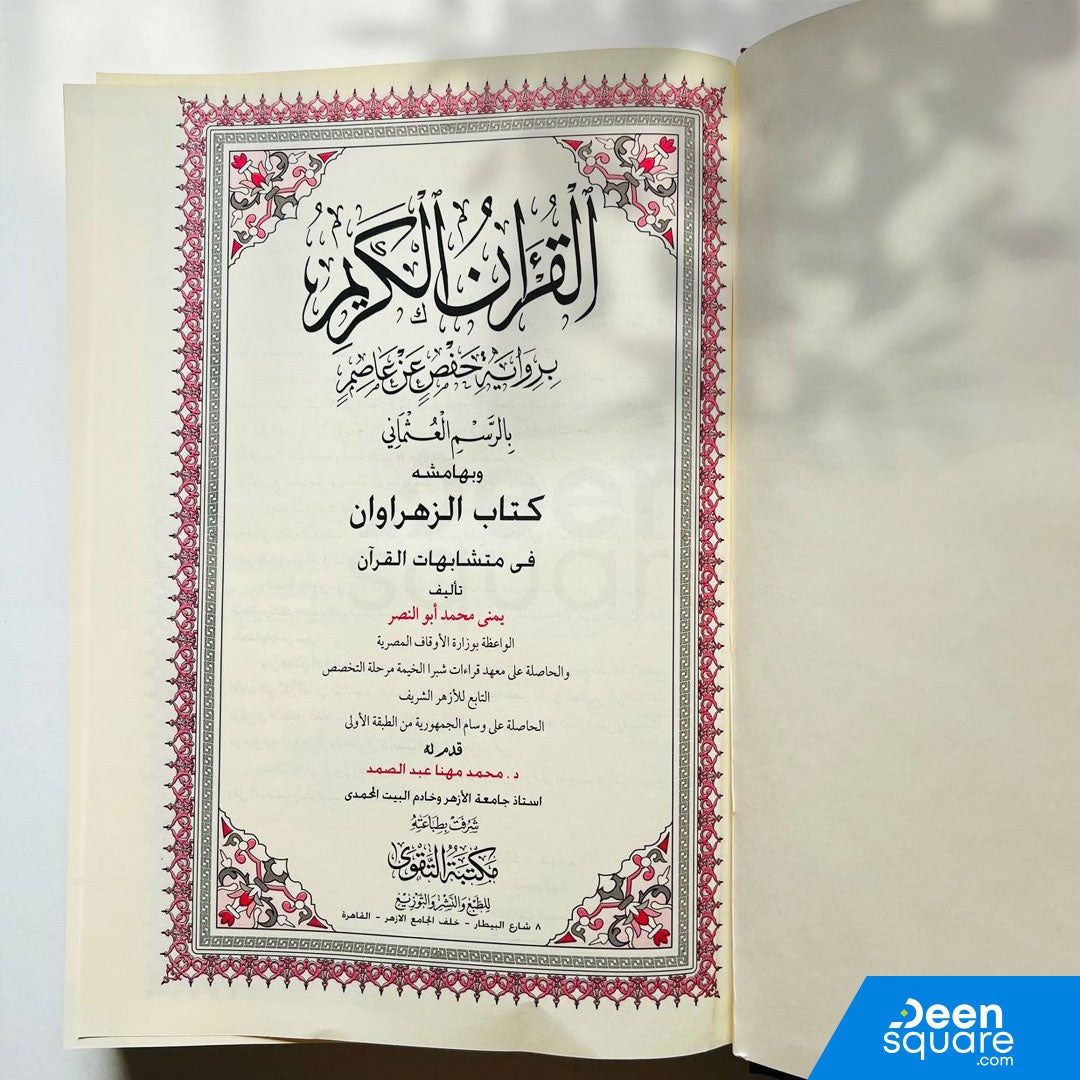 ٱلْقُرْءَانُ ٱلْكَرِيمُ
بِرِوَايَةِ حَفْصٍ عَنْ عَاصِمٍ
بِالرَّسْمِ الْعُثْمَانِي
وبهامشه
كتاب الزهراوان
فى متشابهات القرآن
تأليف
يمنى محمد أبو النصر
الواعظة بوزارة الأوقاف المصرية
والحاصلة على معهد قراءات شبرا الخيمة مرحلة التخصص
التابع للأزهر الشريف
الحاصلة على وسام الجمهورية من الطبقة الأولى
قدم له
د. محمد مهنا عبد الصمد
استاذ جامعة الأزهر وخادم البيت المحمدى
شَرُفَتْ بِطِبَاعَتِهِ
مَكْتَبَةُ التَّقْوَى
لِلطَّبْعِ وَالنَّشْرِ وَالتَّوْزِيْعِ
٨ شارع البيطار - خلف الجامع الازهر - القاهرة
Deen
square
.com